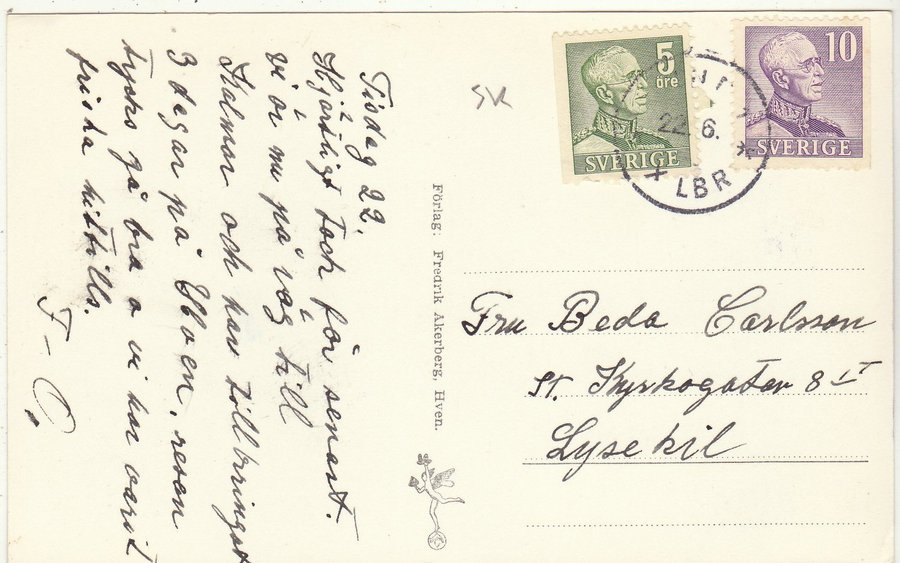 Tisdag 22.
Hjärtligt tack för senast.
vi är nu på väg till
Kalmar och har tillbringat
3 dagar på Hven. resan
tycks gå bra o vi har varit
friska hittills.
F-C.
SK
5
öre
SVERIGE
10
SVERIGE
22.6.
LBR
Förlag: Fredrik Akerberg, Hven.
Fru Beda Carlsson
St. Kyrkogatan 8 LT
Lysekil